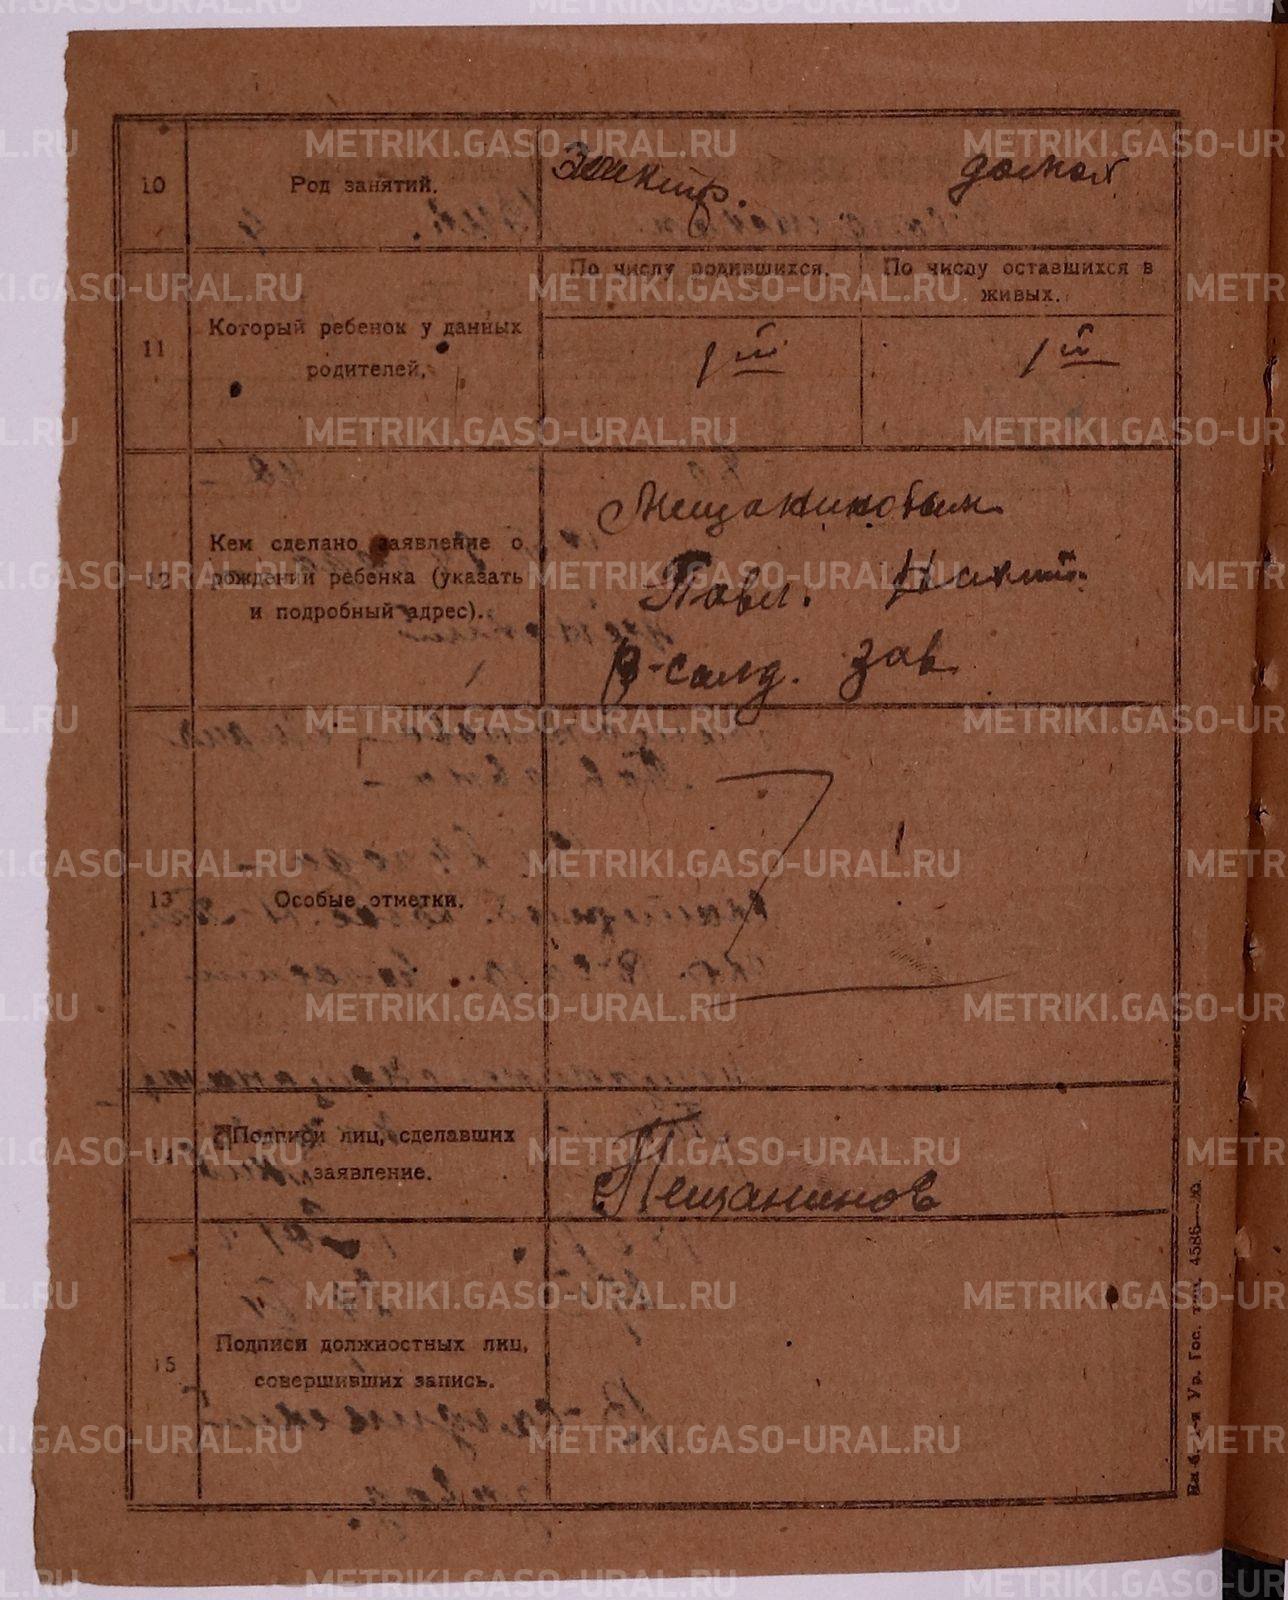 METRIKI.GASO-URAL.RU
10
Род занятий.
Электр.
домох
11
Который ребенок у данных
родителей.
По числу родившихся.
По числу оставшихся в
живых.
1 й
1 й
12
Кем сделано заявление о
рождении ребенка (указать
и подробный адрес).
Мещаниновым
Павл. Никит.
В-салд. зав
13
Особые отметки.
14
Подписи лиц, сделавших
заявление.
Мещанинов
15
Подписи должностных лиц,
совершивших запись.
1-я Ур. Гос. тип. 4586—20.